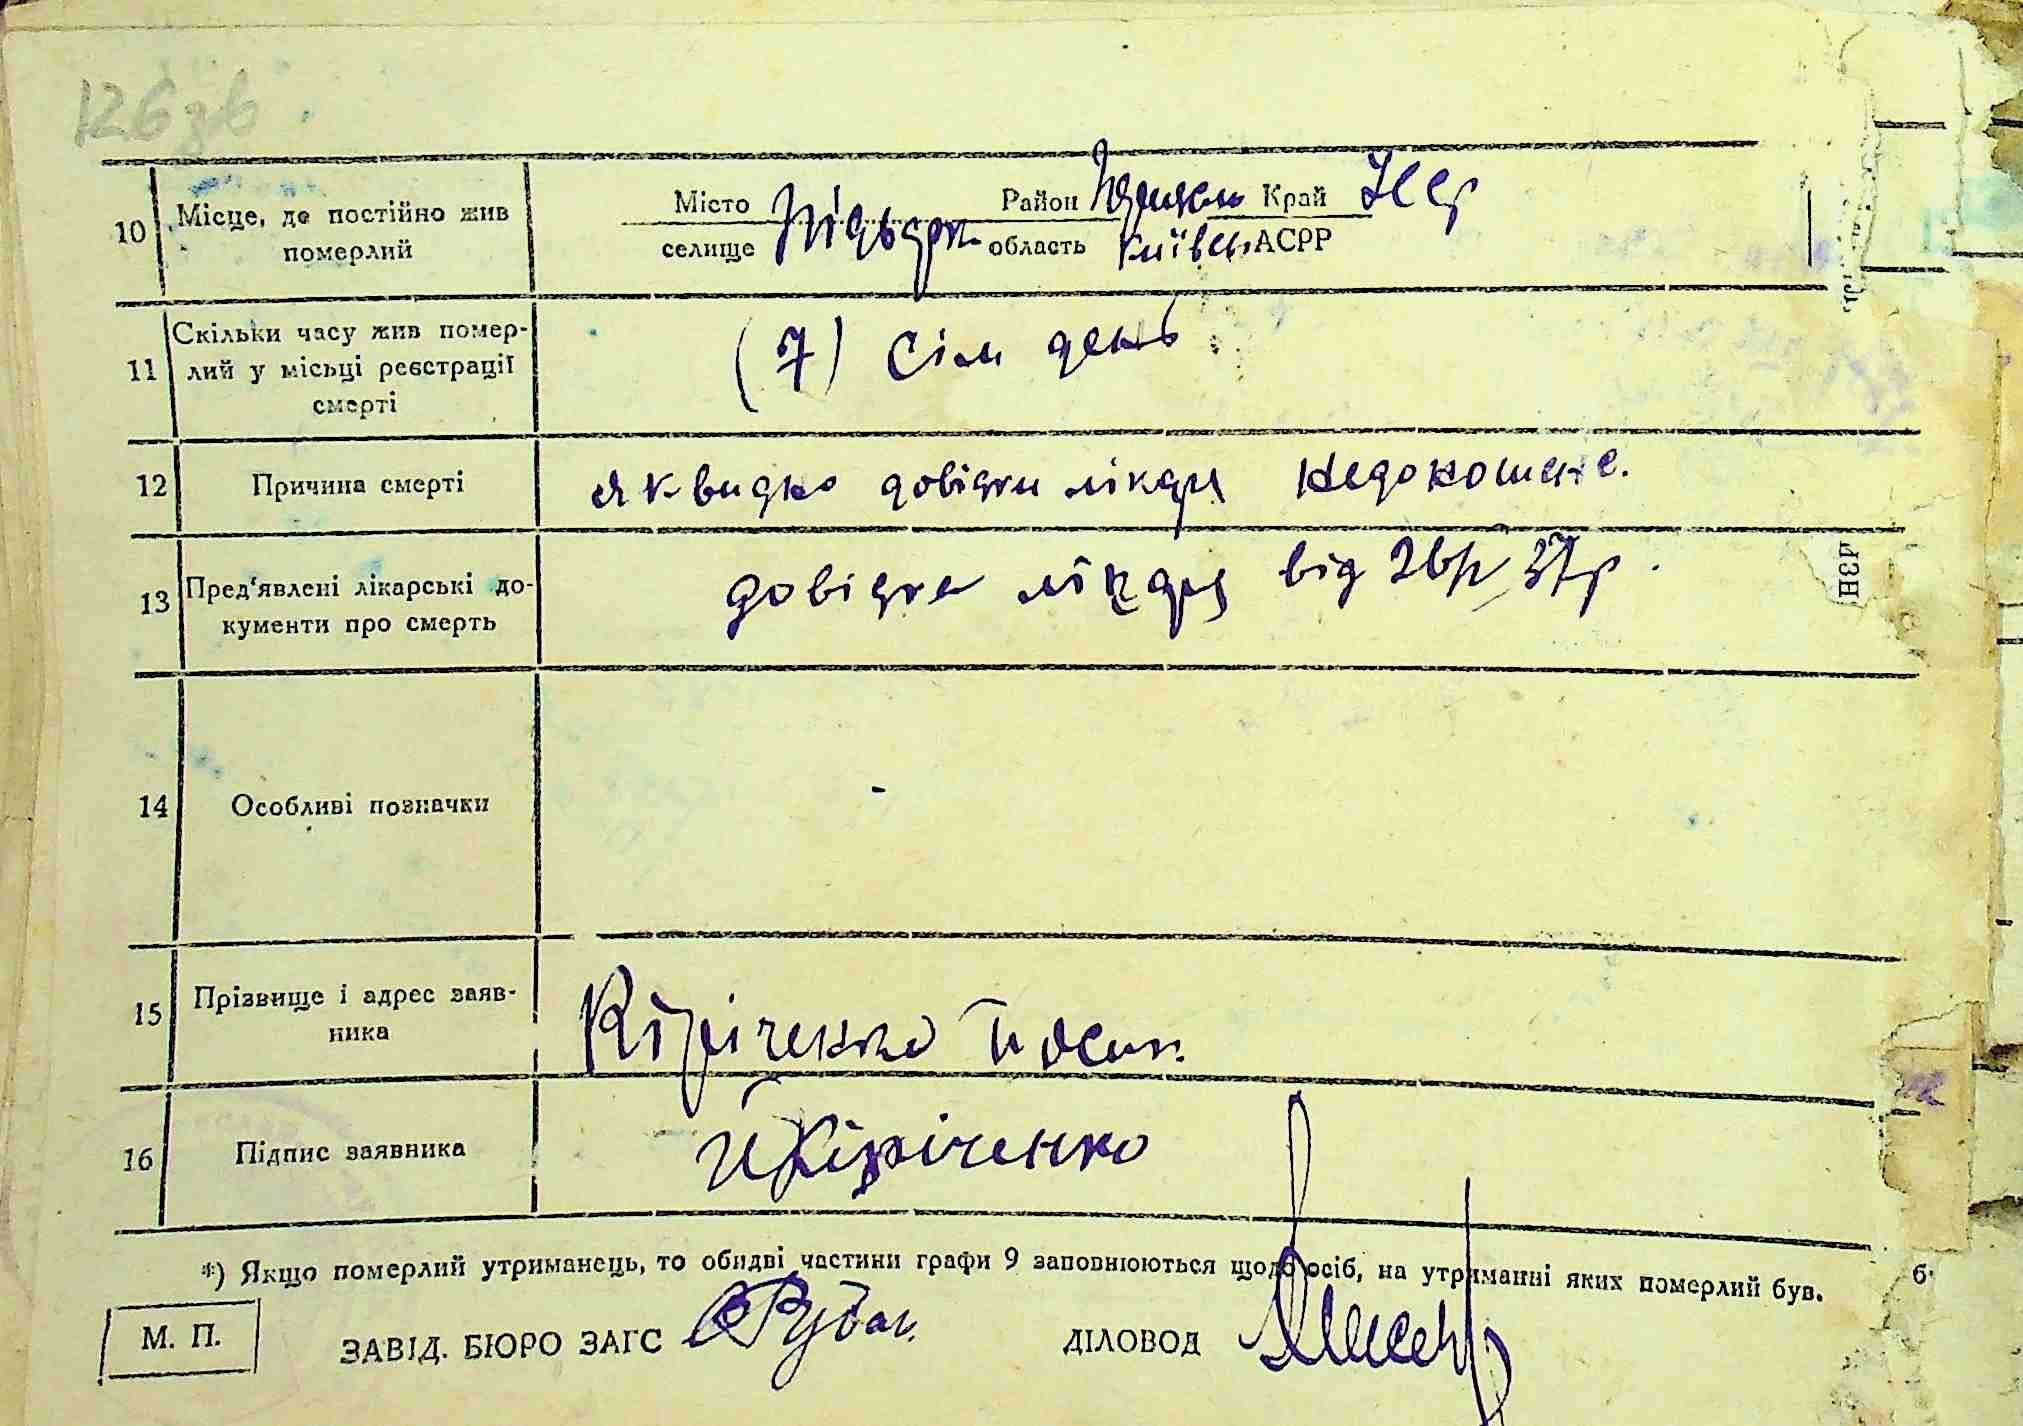 126 зв
10 Місце, де постійно жив померлий
Місто Район Край
селище область Київськ АСРР
11 Скільки часу жив помер-
лий у місьці реєстрації
смерті
(7) Сім день
12 Причина смерті
як видно довідки лікаря недоношене.
13 Пред'явлені лікарські до-
кументи про смерть
довідка лікаря від 37р.
14 Особливі позначки
-
15 Прізвище і адрес заяв-
ника
Кіріченко
16 Підпис заявника
Й Кіріченко
*) Якщо померлий утриманець, то обидві частини графи 9 заповнюються щодо осіб, на утриманні яких померлий був.
М. П.
ЗАВІД. БЮРО ЗАГС
ДІЛОВОД